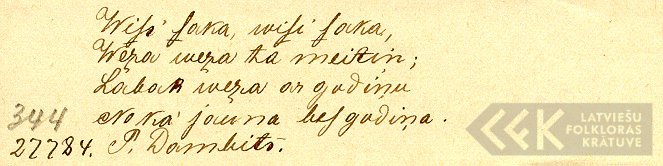 Wisi saka, wisi saka,
Weza weza ta meitin;
Labak weza ar godinu
Nokà jauna bes godiņa.
344
27784. P. Dambits.
LATVIEŠU
FOLKLORAS
KRĀTUVE